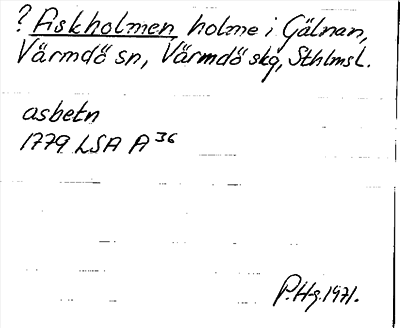 ? Fiskholmen, holme i Gälnan,
Värmdö sn, Värmdö skg, Sthlmsl.
asbetn
1779 LSA A 36
P. H-g. 1971.